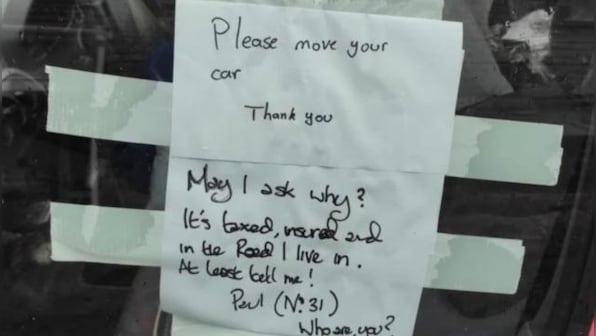 Please move your
car
Thank you
May I ask why?
It's taxed, insured and
in the Road I live in.
At least tell me!
Paul (Nº31)
Who are you?